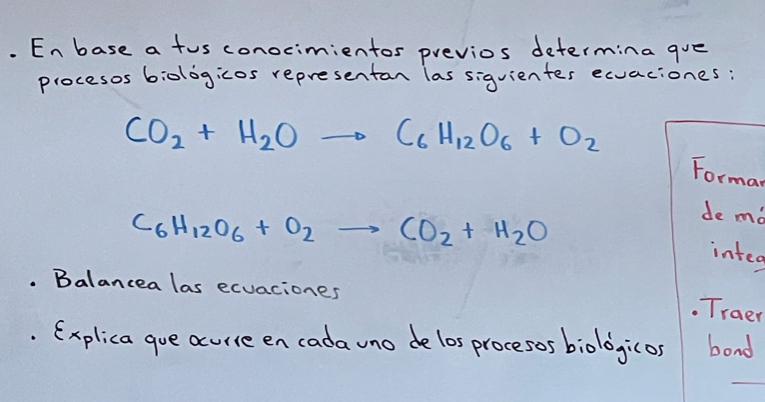 . En base a tus conocimientos previos determina que
procesos biológicos representan las siguientes ecuaciones:
CO₂ + H₂O → C₆H₁₂O₆ + O₂
C₆H₁₂O₆ + O₂ → CO₂ + H₂O
. Balancea las ecuaciones
. Explica que ocurre en cada uno de los procesos biológicos
Formar
de
. Traer
bond